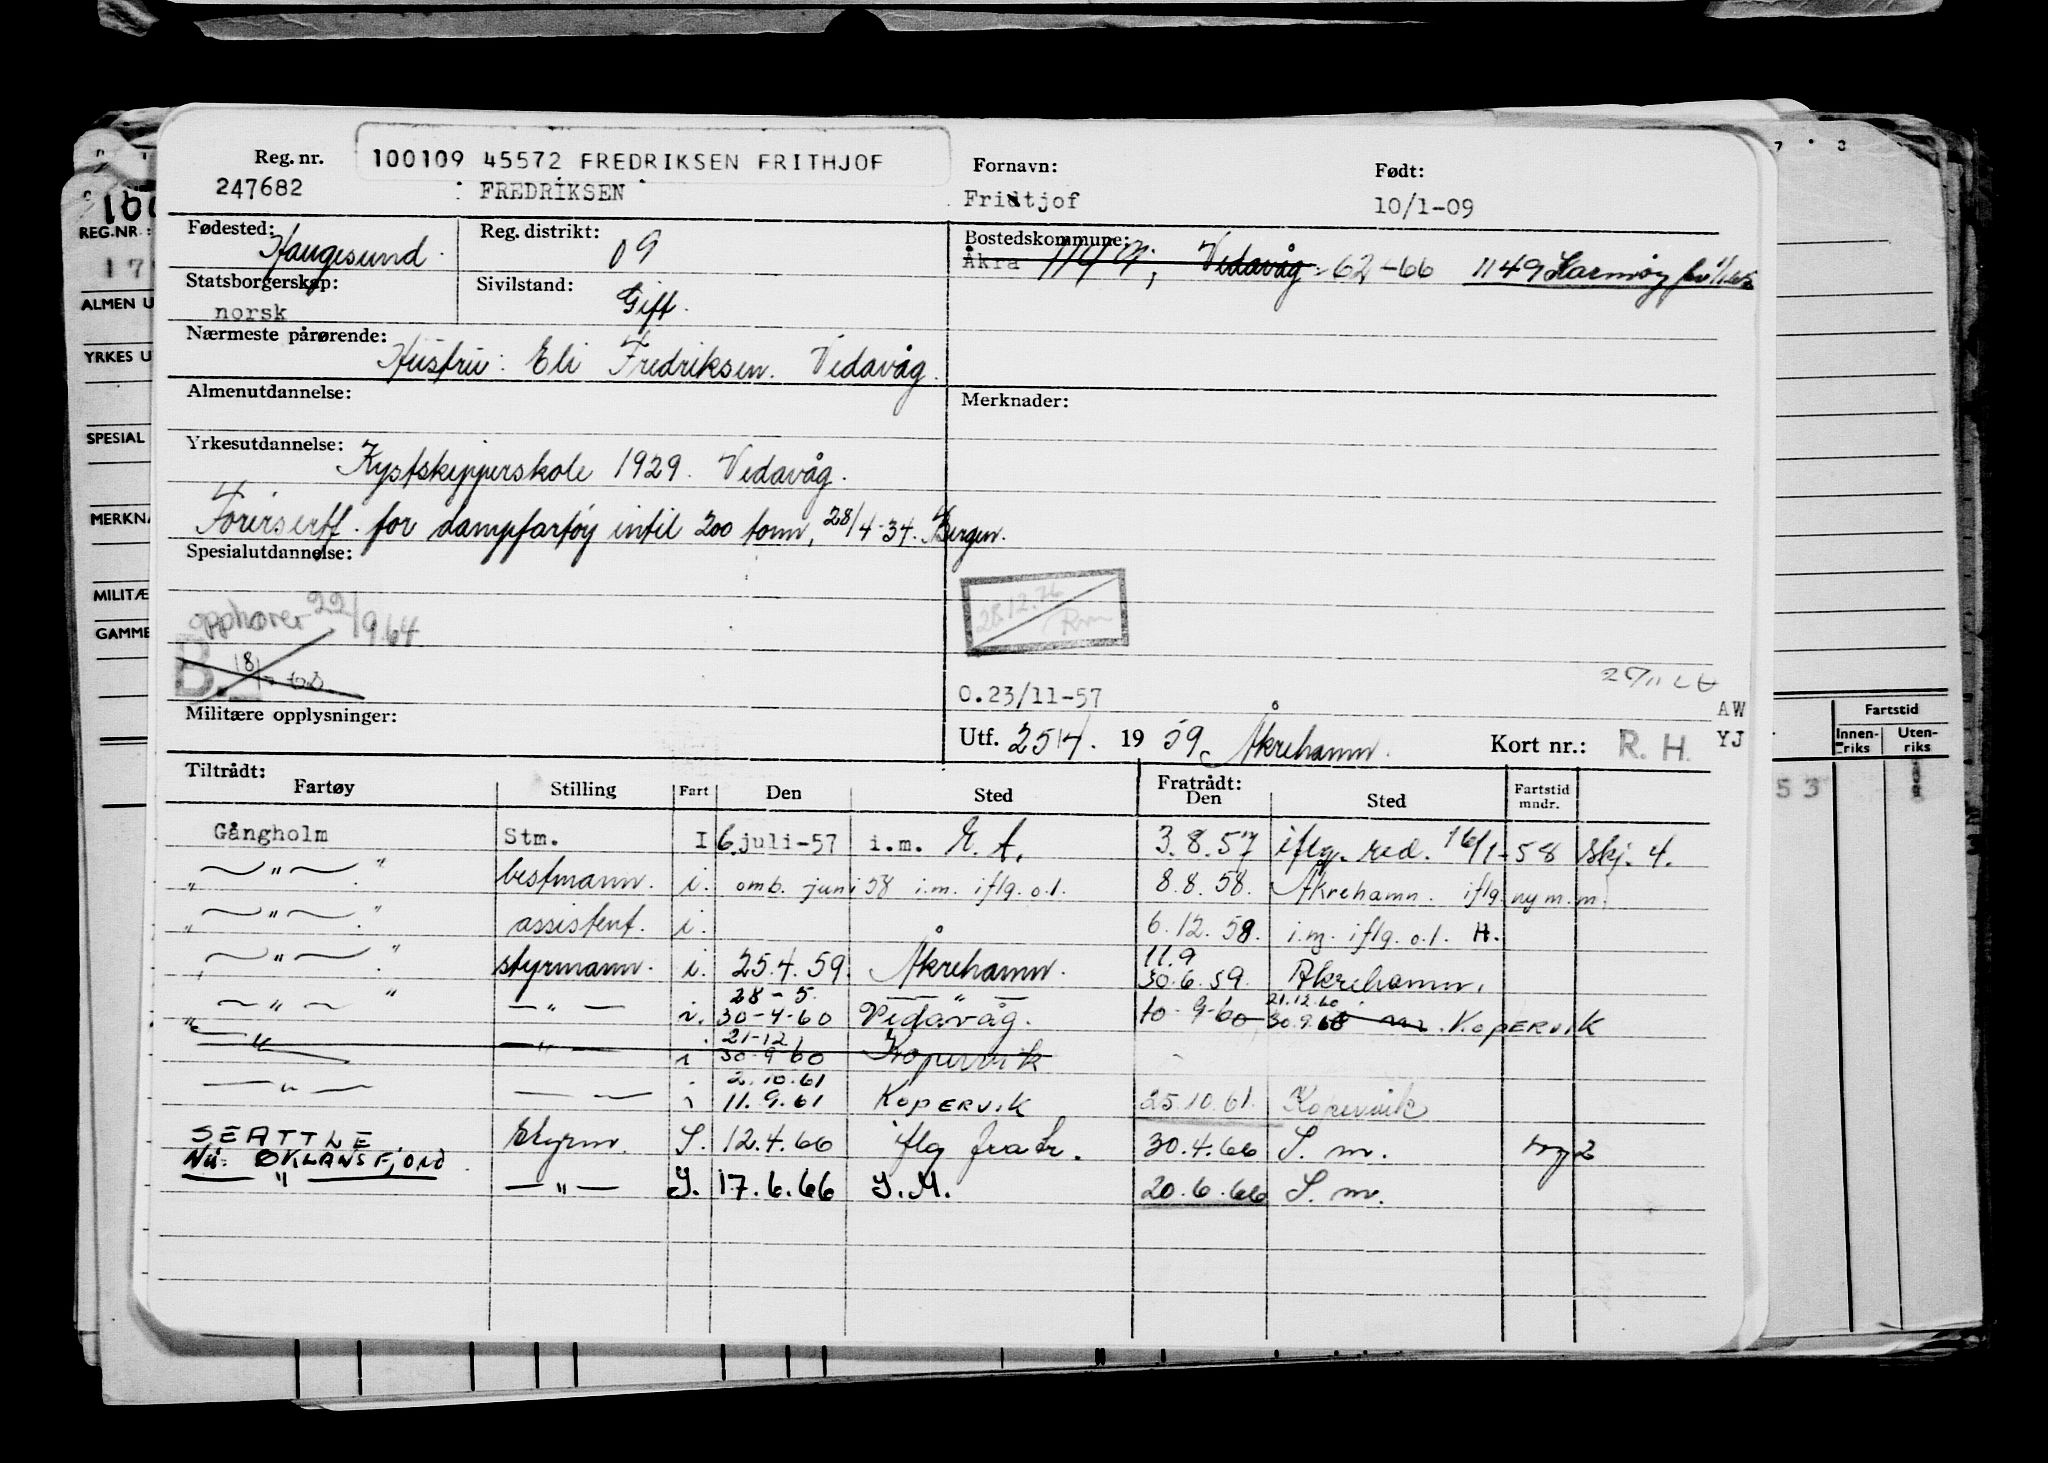 Reg. nr. 100109 45572 FREDRIKSEN FRITHJOF Fornavn: Født:
247682 FREDRIKSEN Fridtjof 10/1-09
Fødested: Haugesund. Reg. distrikt: 09 Bostedskommune:
Åkra Vedavåg 62-66 1149 Karmøy
Statsborgerskap: norsk Sivilstand: Gift.
Nærmeste pårørende:
Hustru: Eli Fredriksen. Vedavåg.
Almenutdannelse: Merknader:
Yrkesutdannelse:
Kystskipperskole 1929. Vedavåg.
for dampfartøy intil 200 tonn, 28/4-34. Bergen.
Spesialutdannelse:
opphører 22/9.64
B
28.12.76
O.23/11-57
AW
Militære opplysninger: Utf. 25/4. 19 59 Åkrehamn. Kort nr.: R. H. YJ
Tiltrådt: Fratrådt:
Fartøy Stilling Fart Den Sted Den Sted Fartstid mndr.
Gångholm Stm. I 6 juli-57 i.m. E. A. 3.8.57 iflg. red. 16/1-58 Skj. 4.
„ — " — " bestmann. i. omb. juni 58 i.m. iflg. o.l. 8.8.58. Åkrehamn. iflg. ny m.m.
„ — " — " assistent. i. 6.12.58. i.m. iflg. o.l. H.
11.9
„ — " — " styrmann. i. 25.4.59. Åkrehamn. 30.6.59. Åkrehamn.
28-5. — " — 21.12.60
— " — " — " — i. 30-4-60 Vedavåg. 10-9-60 30.9.60 KOPERVIK
21-12
„ — " — — " — i 30-9-60 Kopervik
2.10.61
— " — — " — i 11.9.61 KOPERVIK 25.10.61. Kopervik
SEATTLE Styrm. S. 12.4.66 iflg fra tr. 30.4.66 S. m.
Nå: OKLANSFJORD
— " — — " — S. 17.6.66 S.M. 20.6.66 S. m.
REG.NR.:
ALMEN U
YRKES U
SPESIAL
MERKNA
MILITÆ
GAMME
Fartstid
Innen-riks Uten-riks
53